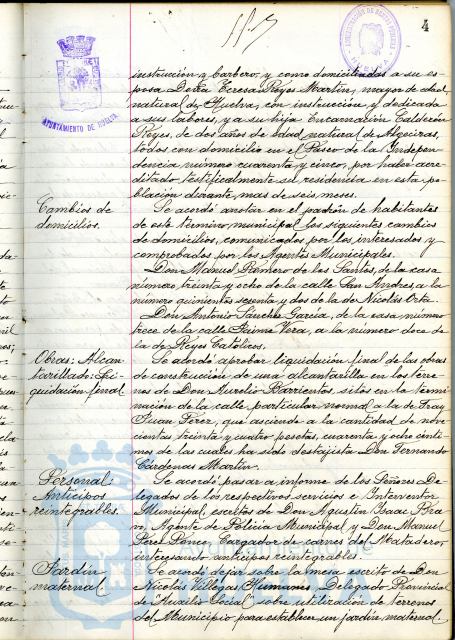 4
AYUNTAMIENTO DE HUELVA
instrucción y barbero, y como domiciliadas a su es-
posa Doña Teresa Reyes Martín, mayor de edad,
natural de Huelva, con instrucción y dedicada
a sus labores, y a su hija Encarnación Calderón
Reyes, de dos años de edad natural de Algeciras,
todos con domicilio en el Paseo de la Indepen-
dencia número cuarenta y cinco, por haber acre-
ditado testificalmente su residencia en esta po-
blación durante más de seis meses.
Cambios de
domicilios.
Se acordó anotar en el padrón de habitantes
de este término municipal los siguientes cambios
de domicilios, comunicados por los interesados y
comprobados por los Agentes Municipales.
Don Manuel Romero de los Santos, de la casa
número treinta y ocho de la calle San Andres, a la
número quinientos sesenta y dos de la de Nicolás Orta.
Don Antonio Sánchez García, de la casa número
trece de la calle Jaime Vera, a la número doce de
la de Reyes Católicos.
Obras: Alcan-
tarillado: Li-
quidación final
Se acordó aprobar liquidación final de las obras
de construcción de una alcantarilla en los terre-
nos de Don Aurelio Barrientos, sitos en la termi-
nación de la calle particular normal a la de Fray
Juan Perez, que asciende a la cantidad de nove-
cientas treinta y cuatro pesetas, cuarenta y ocho cénti-
mos de las cuales ha sido destajista Don Fernando
Cárdenas Martín.
Personal:
Anticipos
reintegrables.
Se acordó pasar a informe de los Señores De-
legados de los respectivos servicios e Interventor
Municipal, escritos de Don Agustín Isaac Bra-
vo, Agente de Policia Municipal y Don Manuel
Pérez Ponce, Cargador de carnes del Matadero,
interesando anticipos reintegrables.
Jardín
maternal
Se acordó dejar sobre la mesa escrito de Don
Nicolás Villegas Humanes, Delegado Provincial
de "Auxilio Social" sobre utilización de terrenos
del Municipio para establecer un jardín maternal.